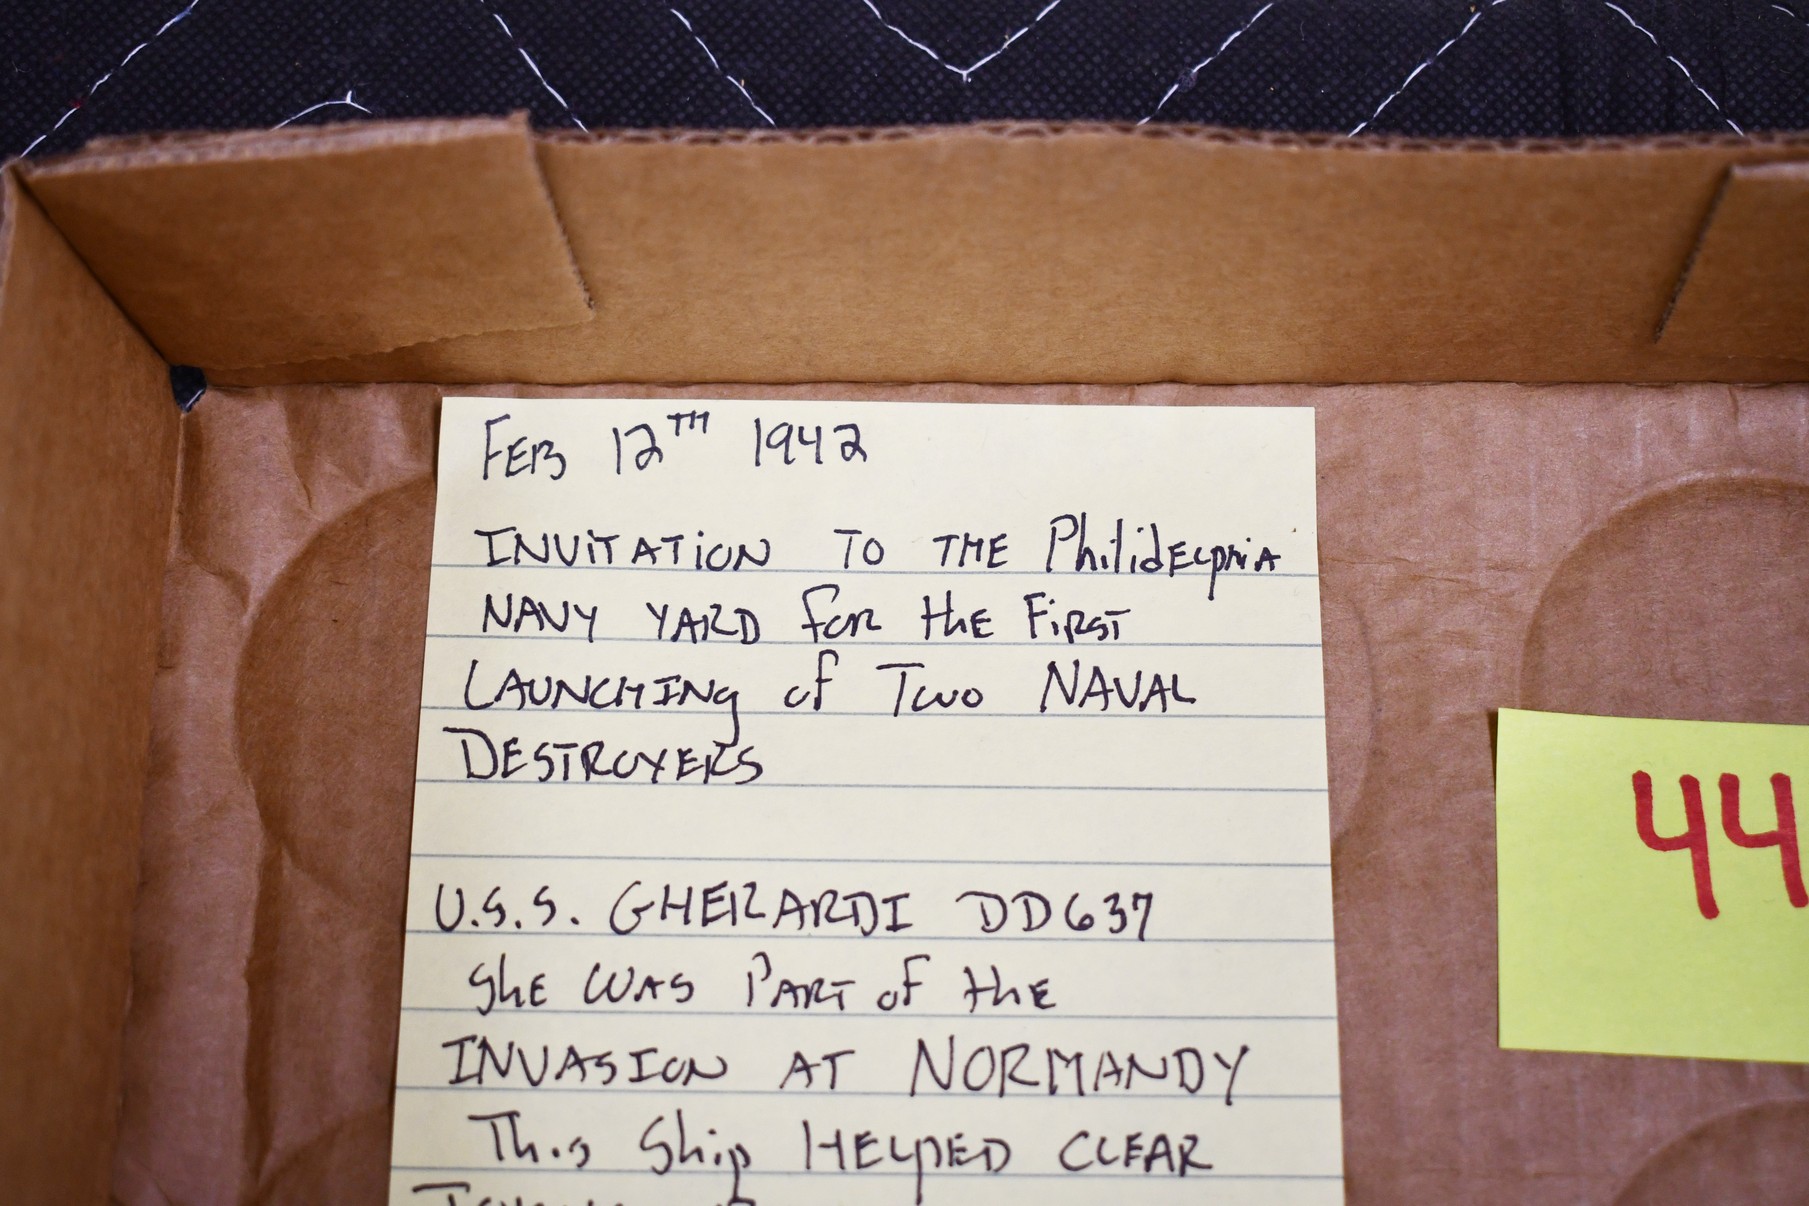 FEB 12TH 1942
INVITATION TO THE PhilidELphiA
NAVY YARD for thE FiRST
LAUNCHING of Two NAVAL
DESTROYERS
U.S.S. GHERARDI DD637
ShE WAS PART of thE
INVASION AT NORMANDY
This Ship HELPED CLEAR
44